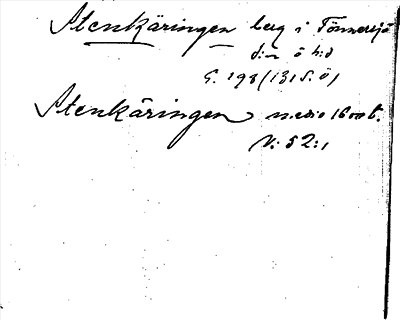 Stenkäringen berg i Tönnersjö
s:n ö h:d
G. 198 (1315. Ö)
Stenkäringen medio 1600 t.
V: 52:1